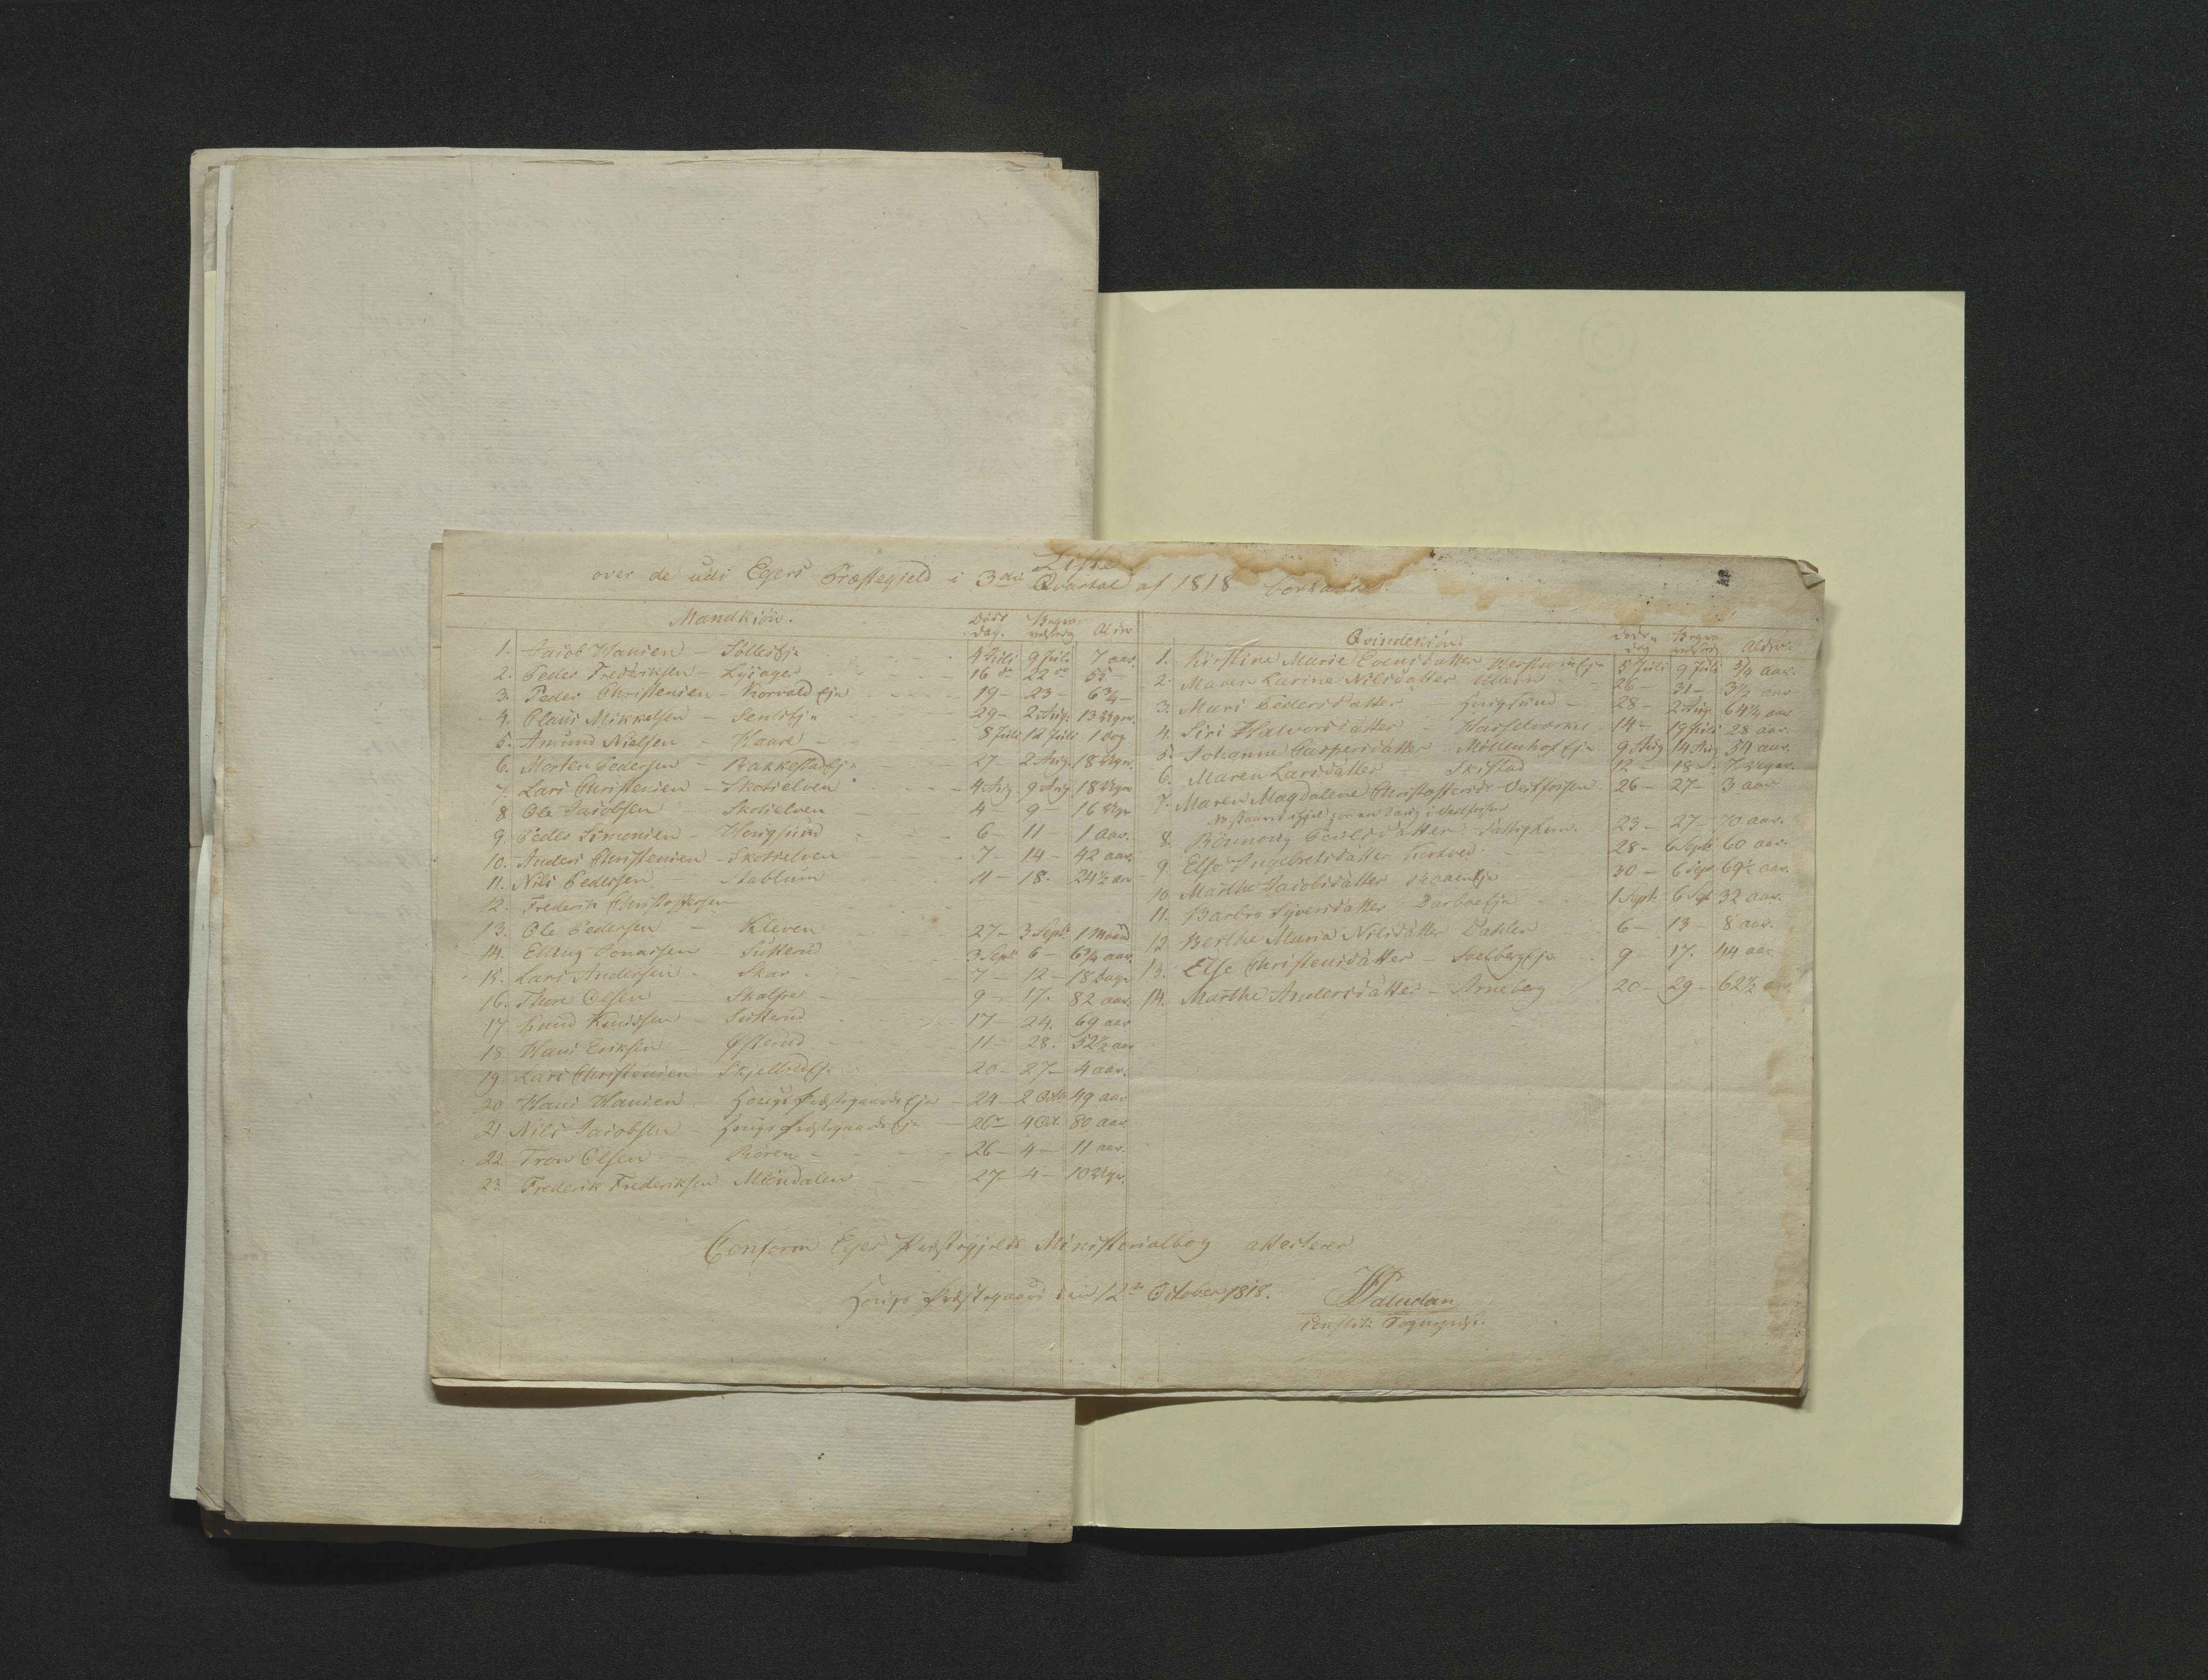 Liste
over de udi Egers Præstegjeld i 3die Qvartal af 1818 bortdøde.
Mandkiön.
Döds Dag. Begravelsesdag Alder
1. Jacob Hansen – Sölles Eje 4 Juli 9 Juli 7 aar.
2. Peder Frederiksen – Lysager 16 do 22 do 55 –
3. Peder Christensen – Korvald Eje 19 – 23 – 6 3/4 –
4. Claus Mikkelsen – 29 – 2 Aug. 13 Uger.
5. Amund Nielsen – Kaare 8 Juli 12 Juli 1 Dag
6. Morten Pedersen – Rakkestad Eje 27 – 2 Aug. 18 Uger.
7. Lars Christensen – Skotselven 4 Aug 9 Aug 18 Uger
8. Ole Jacobsen Skotselven 4 – 9 – 16 Uger
9. Peder Simensen – Hougsund 6 – 11 – 1 aar.
10. Anders Christensen – Skotselven 7 – 14 – 42 aar.
11. Nils Pedersen – Stablum 11 – 18. 24 1/2 aar
12. Frederik Christophersen
13. Ole Pedersen – Kleven 27 – 3 Sept. 1 Maand
14. Elling Jonassen – Sütterud 3 Sept 6 – 6 3/4 aar.
15. Lars Andersen – Skar 7 – 12 – 18 Dage
16. Thore Olsen – Skalstve 9 – 17. 82 aar.
17. Knud Knudsen – Sütterud 17 – 24. 69 aar
18. Hans Eriksen – Østerud 11 – 28. 52 1/2 aar
19. Lars Christensen Skjelbred Eje 20 – 27 – 4 aar.
20. Hans Hansen – Hougs Præstegaards Eje – 24 – 2 Octb 49 aar
21. Nils Jacobsen – Hougs Præstegaards Eje 26 – 4 Oct. 80 aar
22. Tron Olsen – Rören – 26 – 4 – 11 aar.
23. Frederik Frederiksen Miöndalen 27 – 4 – 10 Uger.
Qvindekiön.
Döds Dag Begravelsesdag Alder
1. Kirstine Marie Evensdatter Eje 5 Juli 9 Juli 3/4 aar.
2. Maren Karine Nilsdatter Ullern 26 – 31 – 3 1/2 aar
3. Mari Pedersdatter – Hougsund – 28 – 2 Aug. 64 1/4 aar
4. Siri Halvorsdatter – Hasselværket 14 – 19 Juli 28 aar
5. Johanne Caspersdatter Möllenhof Eje 9 Aug 14 Aug 3/4 aar.
6. Maren Larsdatter – Skistad 12 – 18 – 7 Uger.
7. Maren Magdalene Christophersd. Vestfossen 26 – 27 – 3 aar
8. Rönnoug Poulsdatter – Fattiglem. 23 – 27 – 70 aar.
9. Else Ingebretsdatter 28 – 6 Sept 60 aar.
10. Marthe Jacobsdatter Eje 30 – 6 Sept 69 1/2 aar.
11. Barbro Syversdatter Darbo Eje 1 Sept 6 Sept 32 aar.
12. Berthe Maria Nilsdatter Dahler 6 – 13 – 8 aar.
13. Else Christensdatter – Soelberg Eje 9 – 17. 44 aar
14. Marthe Andersdatter – Arneberg 20 – 29 – 62 1/2 aar.
Conform Eger Præstegjelds Ministerialbog attesterer
Hougs Præstegaard den 12te October 1818. Paludan
constit: Sogneprest.